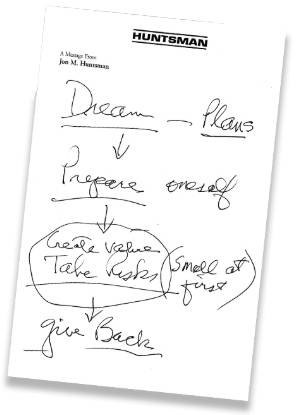 HUNTSMAN
A Message From
Jon M. Huntsman
Dream - Plans
Prepare oneself
Create Value
Take Risks (Small at
first)
give Back